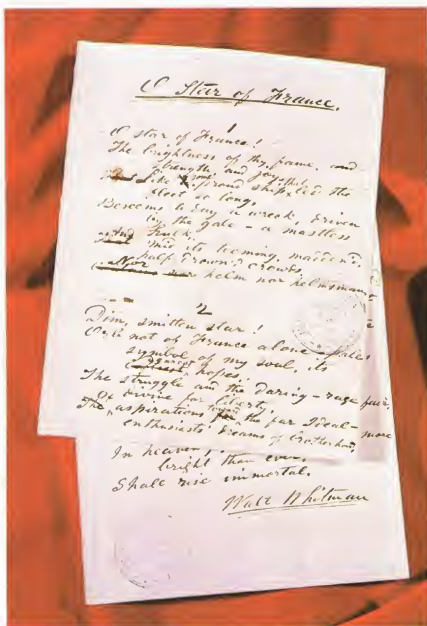 O Star of France.
1
O star of France!
The brightness of thy fame, and
strength and joy,
Like some proud ship that led the
fleet so long,
Beseems to-day a wreck, driven
by the gale – a mastless
hulk,
And 'mid its teeming, madden'd,
half-drown'd crowds,
Nor helm nor helmsman
2
Dim, smitten star!
Orb not of France alone – pale
symbol of my soul, its
dearest hopes,
The struggle and the daring – rage
divine for liberty,
The aspirations toward the far Ideal –
enthusiasts' dreams of brotherhood,
In heaven,
bright than ever,
Shall rise immortal.
Walt Whitman